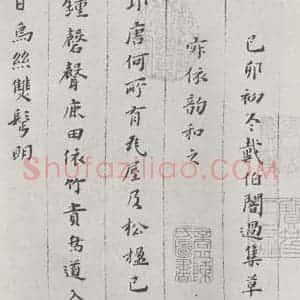 己卯初冬戴伯闇過集草
亦依韵和之
邛唐何所有瓦屋居松楹已
鍾磬聲鹿田依竹貴葛道入
日烏絲雙髩明
Shufaziliao.com